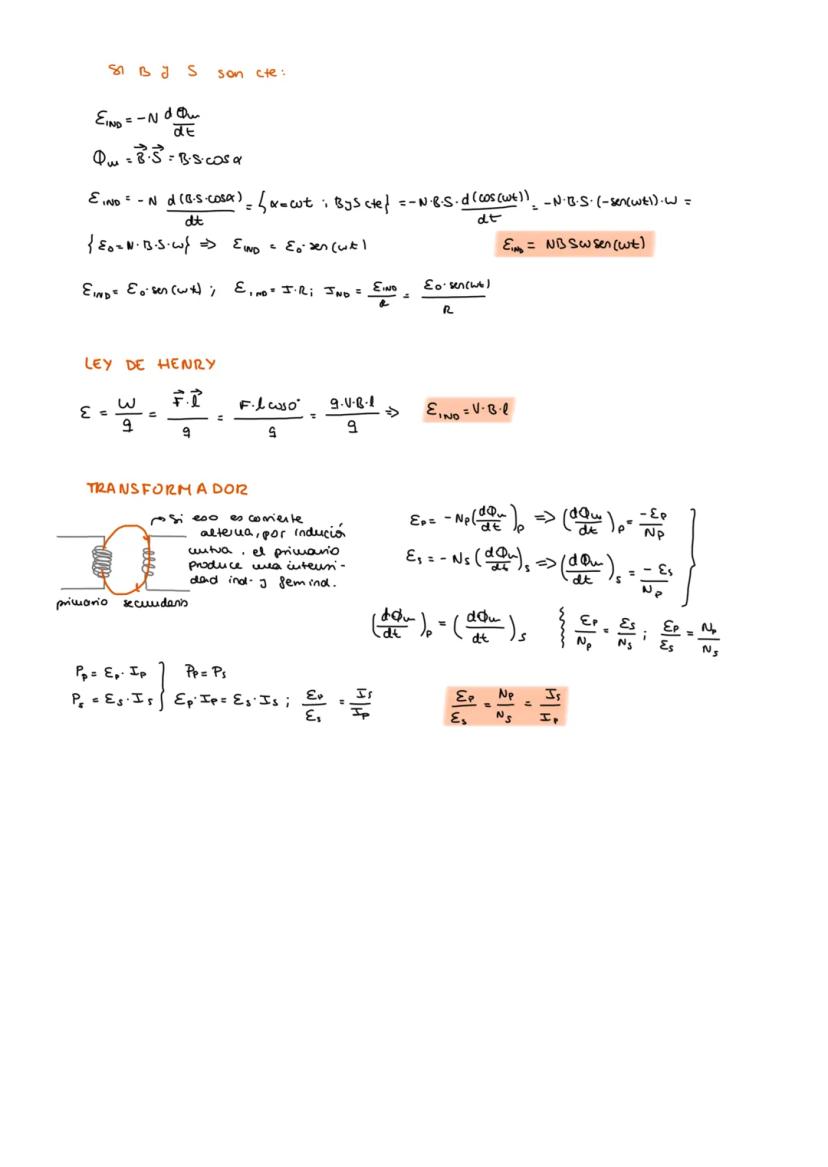 SI B y S son cte:
Ɛ_IND = -N dΦm/dt
Φm = B⃗·S⃗ = B·S·cosα
Ɛ_IND = -N d(B·S·cosα)/dt = {α=ωt ; B y S cte} = -N·B·S· d(cos(ωt))/dt = -N·B·S·(-sen(ωt))·W =
{Ɛ₀=N·B·S·ω} => Ɛ_IND = Ɛ₀·sen(ωt)
Ɛ_IND = NBSWsen(ωt)
Ɛ_IND = Ɛ₀·sen(ωt) ; Ɛ_IND = I·R ; I_ND = Ɛ_IND/R = Ɛ₀·sen(ωt)/R
LEY DE HENRY
Ɛ = W/q = F⃗·l⃗/q = F·l cos0°/q = q·V·B·l/q => Ɛ_IND = V·B·l
TRANSFORMADOR
Si eso es corriente
alterna, por indució
mutua, el primario
produce una intensi-
dad ind. y fem ind.
primario secundario
Ɛp = -Np(dΦm/dt)p => (dΦm/dt)p = -Ɛp/Np
Ɛs = -Ns(dΦm/dt)s => (dΦm/dt)s = -Ɛs/Np
(dΦm/dt)p = (dΦm/dt)s { Ɛp/Np = Ɛs/Ns ; Ɛp/Ɛs = Np/Ns
Pp = Ɛp·Ip } Pp = Ps
Ps = Ɛs·Is } Ɛp·Ip = Ɛs·Is ; Ɛp/Ɛs = Is/Ip
Ɛp/Ɛs = Np/Ns = Is/Ip